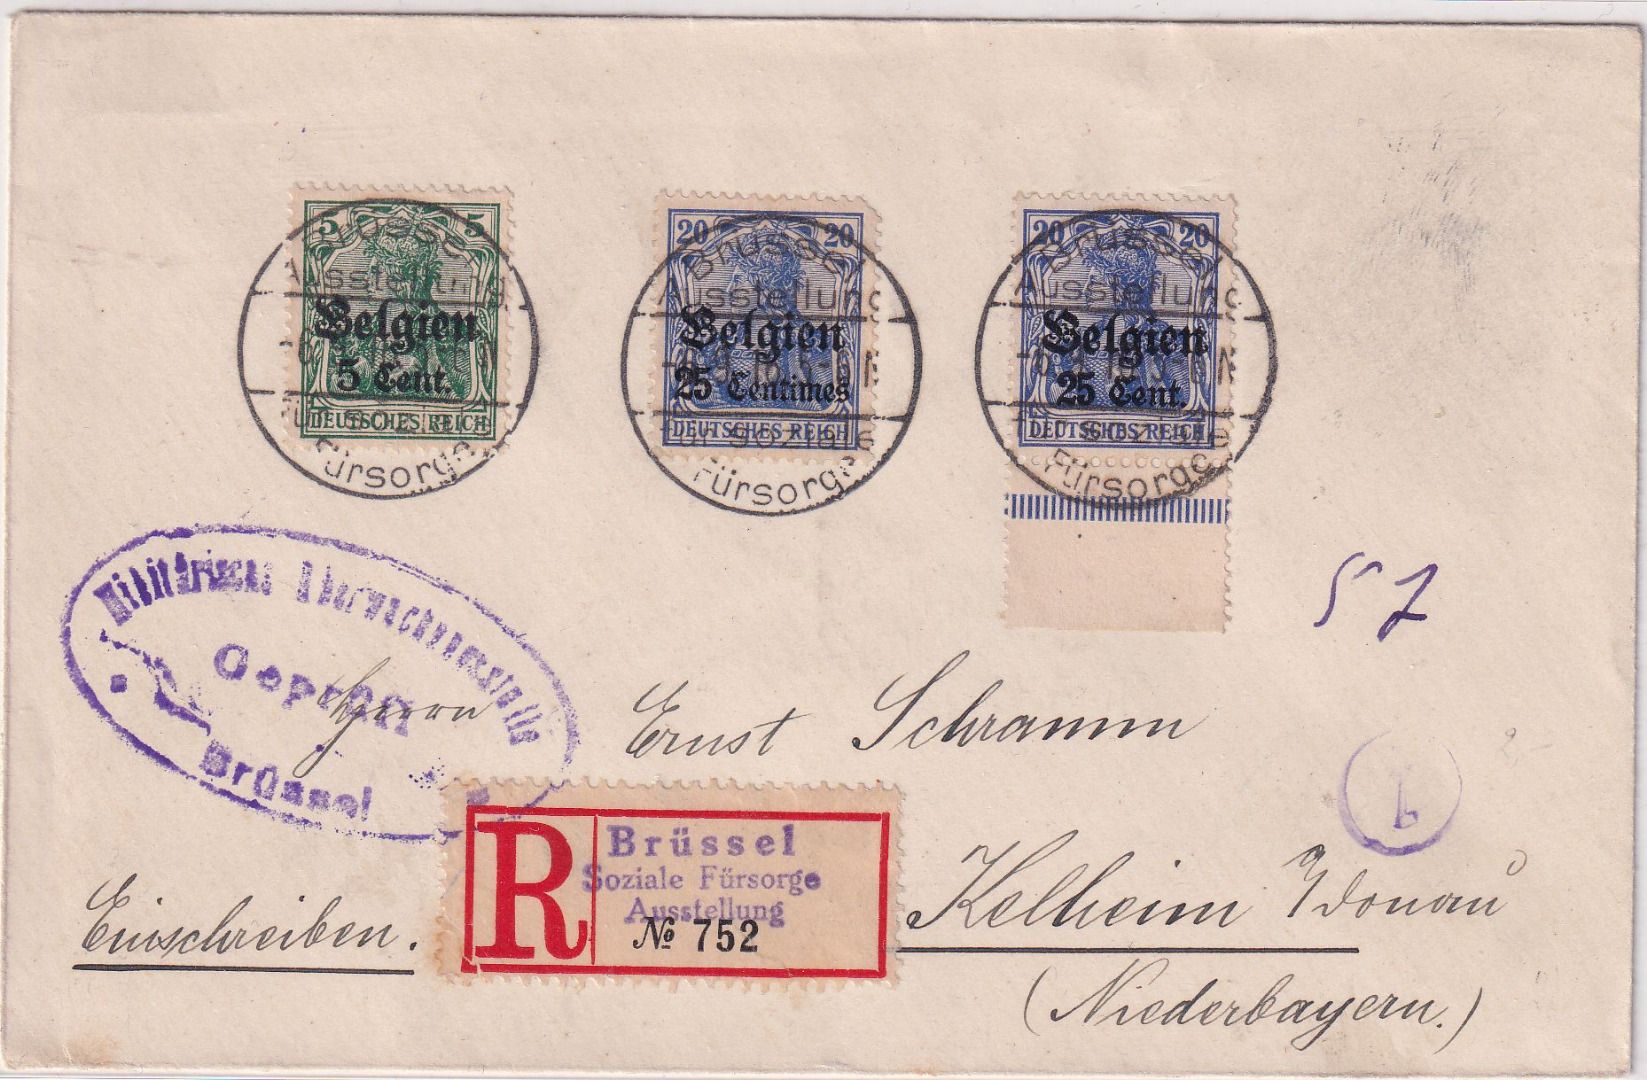 5 5
Belgien
5 Cent.
DEUTSCHES REICH
20 20
Belgien
25 Centimes
DEUTSCHES REICH
20 20
Belgien
25 Cent.
DEUTSCHES REICH
Brüssel
Ausstellung
Fürsorge
Brüssel
Ausstellung
5-6N
für soziale
Fürsorge
Brüssel
Ausstellung
Fürsorge
57
Militärische Überwachungsstelle
Geprüft
Brüssel
Herrn Ernst Schramm
R
Brüssel
Soziale Fürsorge
Ausstellung
№ 752
Einschreiben.
Kelheim Donau
(Niederbayern.)